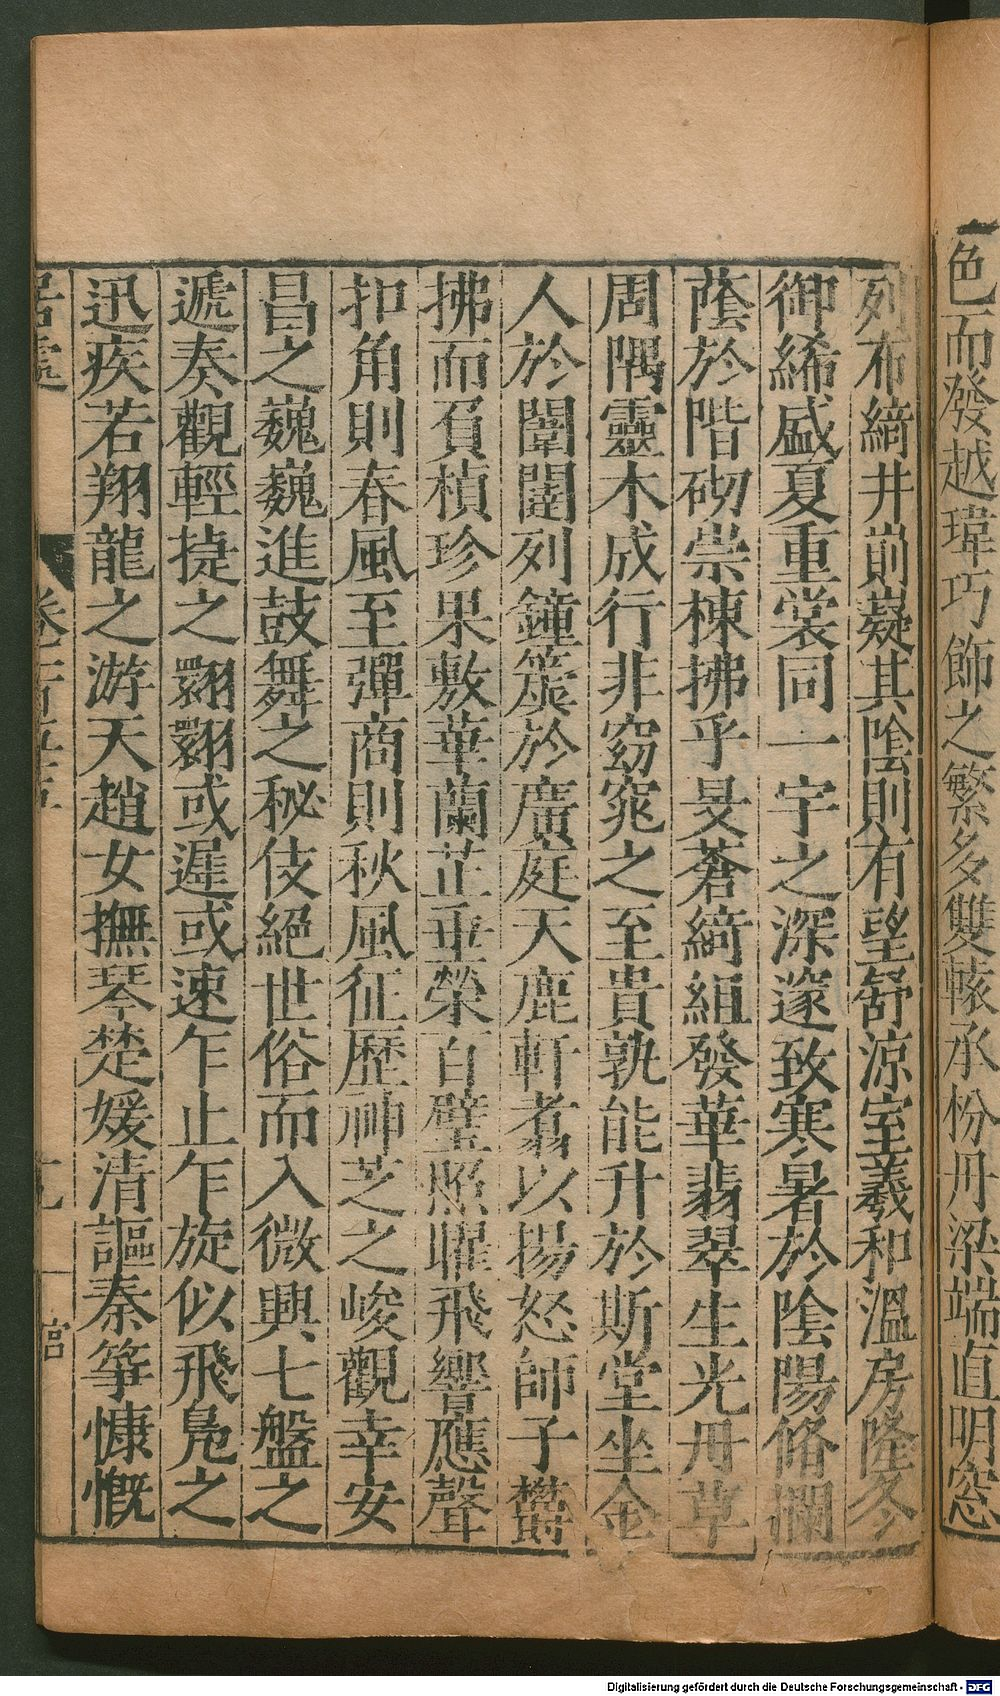 色而發越瑋巧飾之繁多雙轅承枌丹梁端直明窓
列布綺井前嶷其陰則有望舒涼室羲和溫房隆冬
御絺盛夏重裳同一宇之深邃致寒暑於陰陽脩欄
蔭於階砌崇棟拂乎旻蒼綺組發華翡翠生光丹草
周隅靈木成行非窈窕之至貴孰能升於斯堂坐金
人於闈闥列鐘簴於廣庭天鹿軒翥以揚怒師子欝
拂而負楨珍果敷華蘭芷垂榮百璧照曜飛響應聲
扣角則春風至彈商則秋風征歷神芝之峻觀幸安
昌之巍巍進鼓舞之秘伎絕世俗而入微興七盤之
遞奏觀輕捷之翾翾或遲或速乍止乍旋似飛鳧之
迅疾若翔龍之游天趙女撫琴楚媛清謳秦筝慷慨
居處
Digitalisierung gefördert durch die Deutsche Forschungsgemeinschaft - DFG